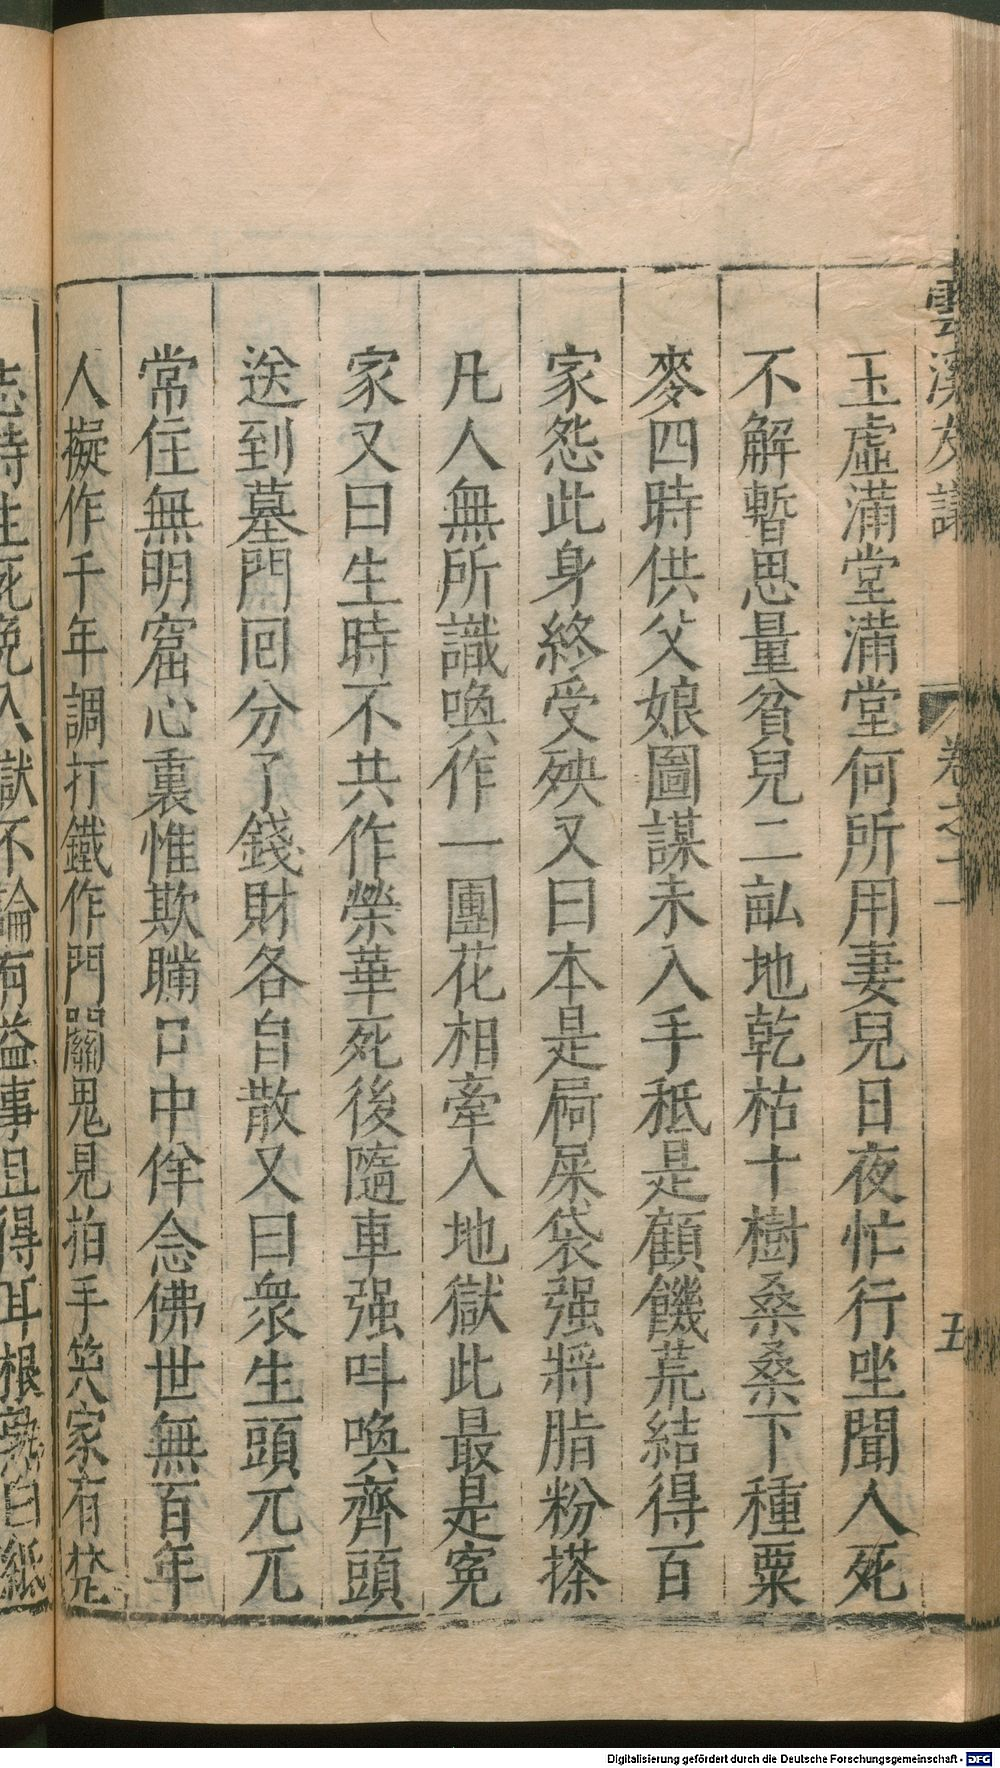 雲溪友議
卷之十一
五
玉虛滿堂滿堂何所用妻兒日夜忙行坐聞人死
不解暫思量貧兒二畝地乾枯十樹桑桑下種粟
麥四時供父娘圖謀未入手秖是顧饑荒結得百
家怨此身終受殃又曰本是屙屎袋强將脂粉搽
凡人無所識喚作一團花相牽入地獄此最是寃
家又曰生時不共作榮華死後隨車强呌喚齊頭
送到墓門回分了錢財各自散又曰衆生頭兀兀
常住無明窟心裏惟欺瞞口中佯念佛世無百年
人擬作千年調打鐵作門關鬼見拍手笑家有梵
志詩生死免入獄不論有益事且得耳根熟白紙
Digitalisierung gefördert durch die Deutsche Forschungsgemeinschaft - DFG